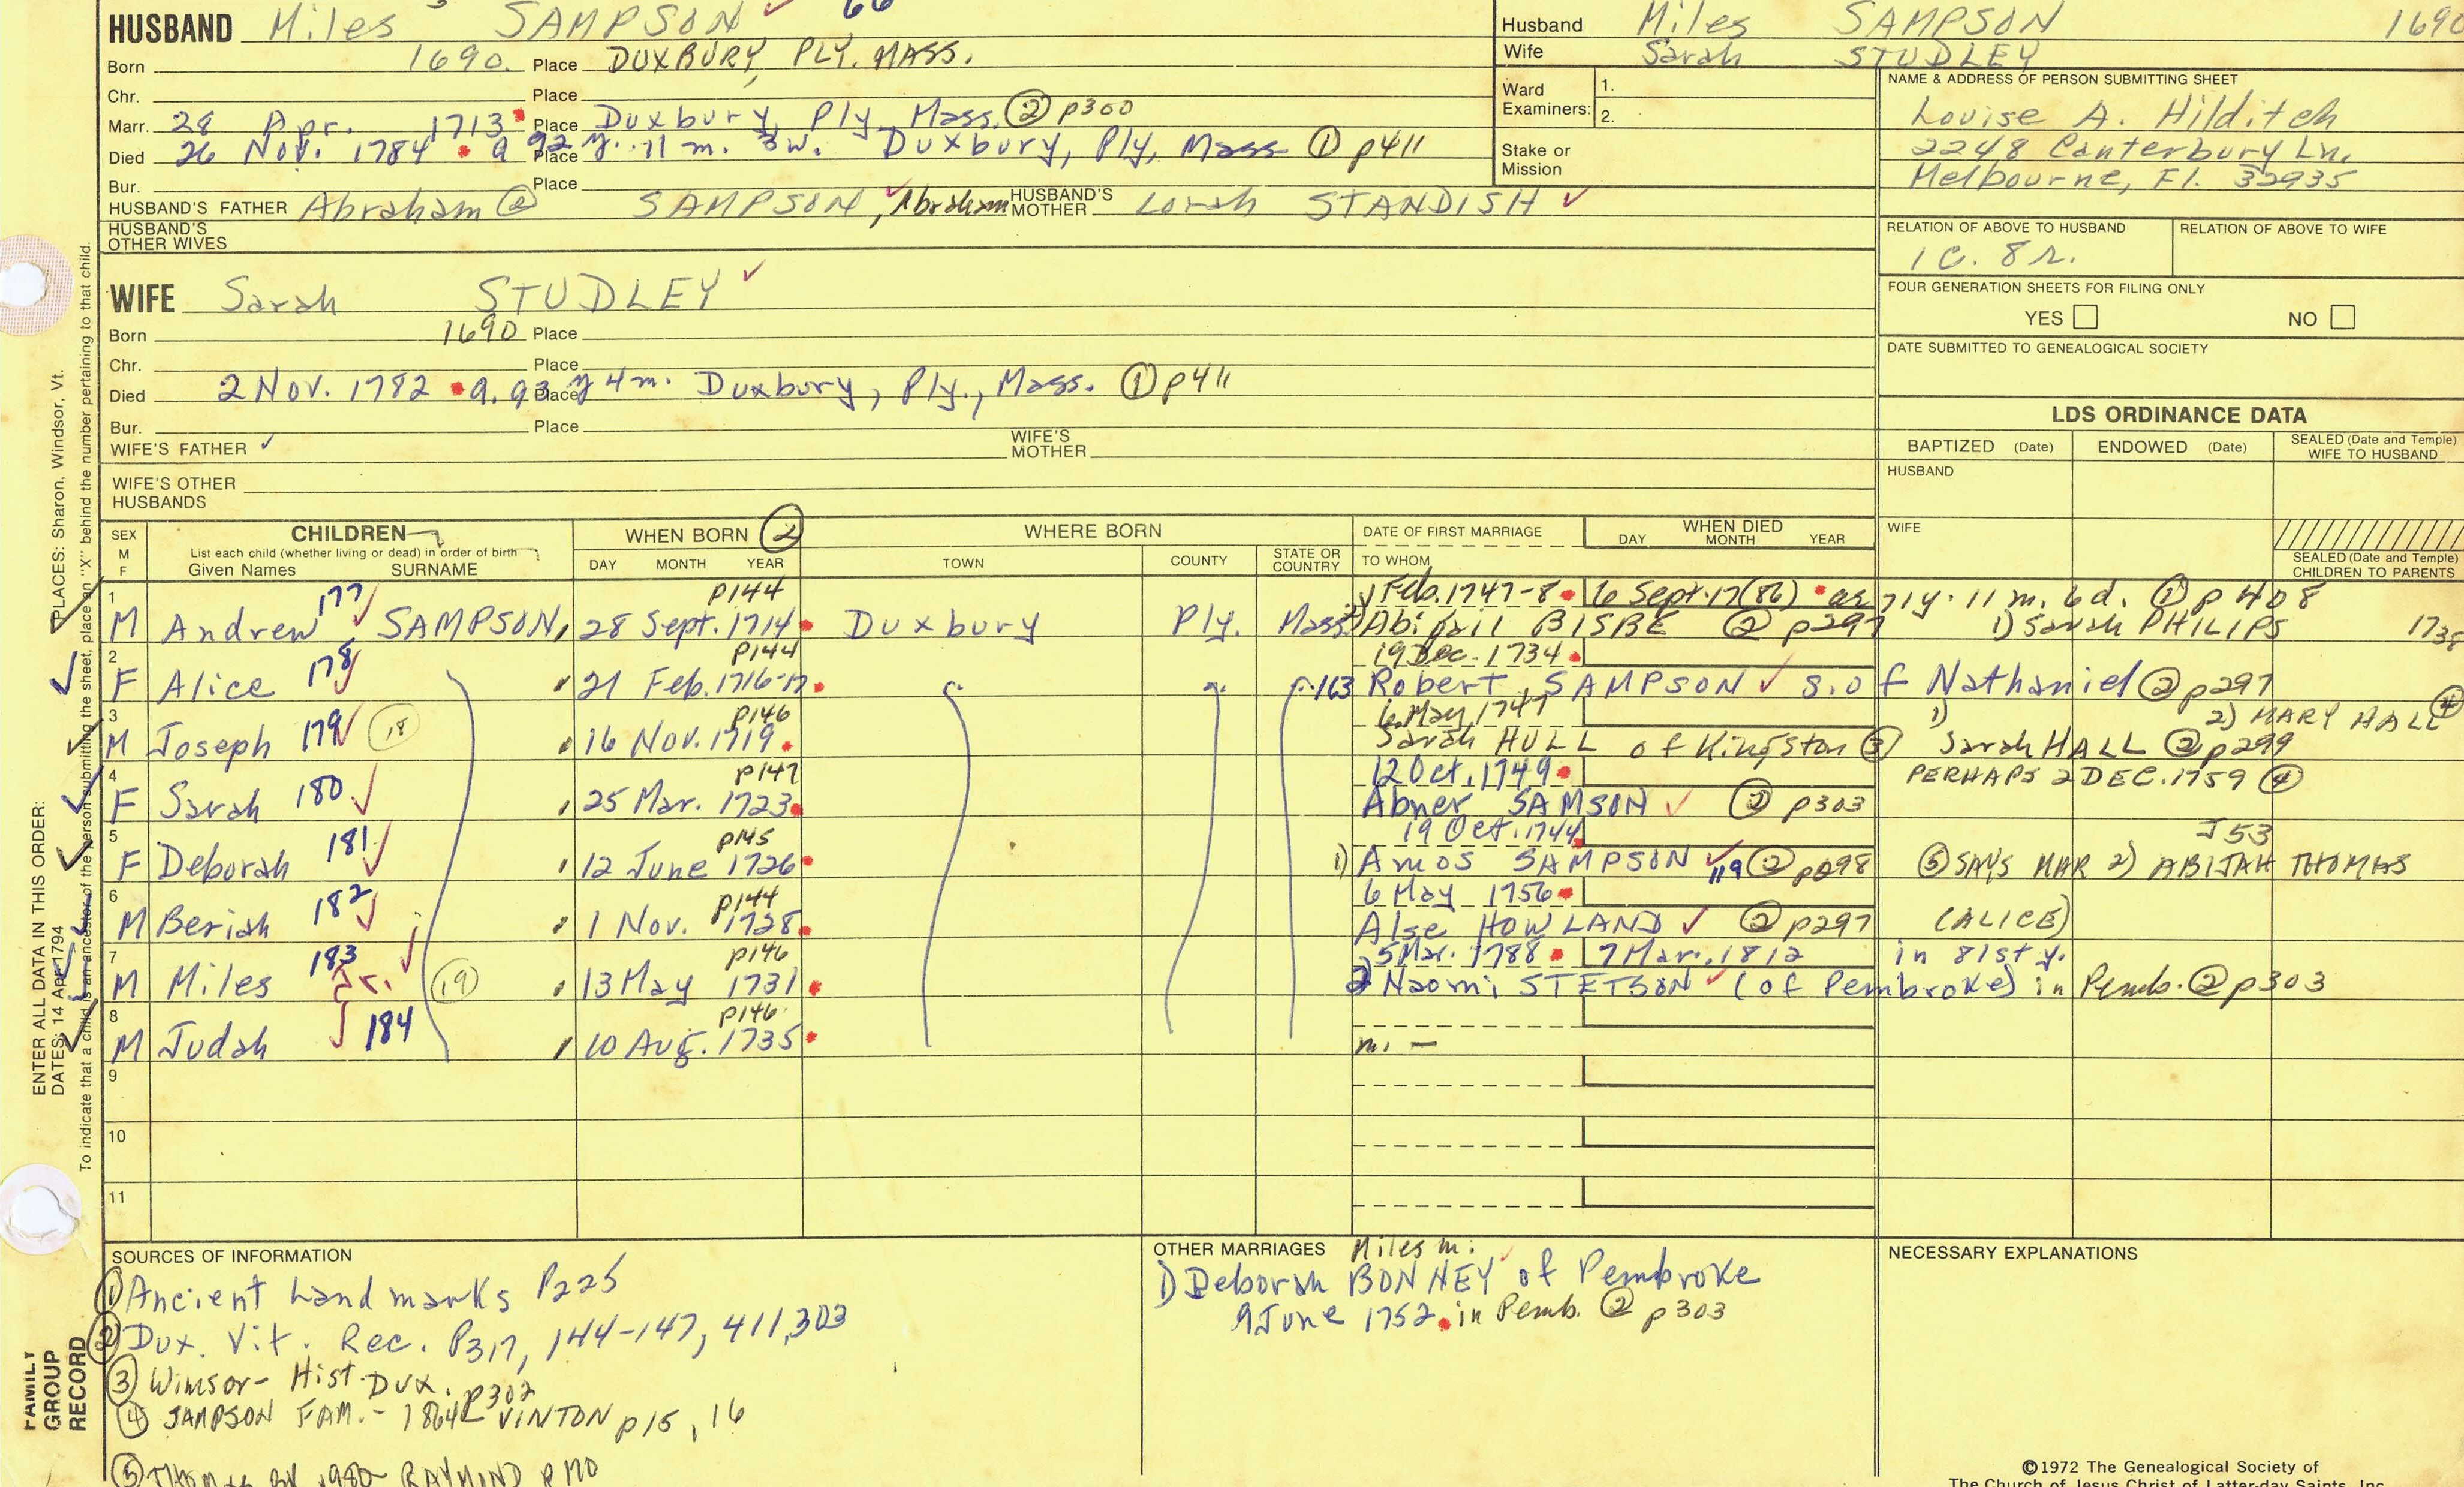 HUSBAND Miles SAMPSON ✓ 66
Born 1690. Place DUXBURY, PLY. MASS.
Chr. Place
Marr. 28 Apr. 1713 Place Duxbury, Ply, Mass. ② p300
Died 26 Nov. 1784 a 92 Place y. 11 m. 3w. Duxbury, Ply, Mass ① p411
Bur. Place
HUSBAND'S FATHER Abraham ② SAMPSON ✓, Abraham HUSBAND'S MOTHER Lorah STANDISH ✓
HUSBAND'S OTHER WIVES
Husband Miles SAMPSON 1690
Wife Sarah STUDLEY
Ward Examiners: 1.
2.
Stake or Mission
NAME & ADDRESS OF PERSON SUBMITTING SHEET
Louise A. Hilditch
2248 Canterbury Ln.
Melbourne, Fl. 32935
RELATION OF ABOVE TO HUSBAND RELATION OF ABOVE TO WIFE
1 C. 8 r.
FOUR GENERATION SHEETS FOR FILING ONLY
YES NO
DATE SUBMITTED TO GENEALOGICAL SOCIETY
WIFE Sarah STUDLEY ✓
Born 1690 Place
Chr. Place
Died 2 Nov. 1782 a. 93 Place y 4 m. Duxbury, Ply., Mass. ① p411
Bur. Place
WIFE'S FATHER ✓ WIFE'S MOTHER
WIFE'S OTHER HUSBANDS
LDS ORDINANCE DATA
BAPTIZED (Date) ENDOWED (Date) SEALED (Date and Temple) WIFE TO HUSBAND
HUSBAND
WIFE
SEALED (Date and Temple) CHILDREN TO PARENTS
SEX M F CHILDREN WHEN BORN ② WHERE BORN DATE OF FIRST MARRIAGE WHEN DIED
List each child (whether living or dead) in order of birth
Given Names SURNAME DAY MONTH YEAR TOWN COUNTY STATE OR COUNTRY TO WHOM DAY MONTH YEAR
1 177 p144 1 Feb. 1747-8 6 Sept. 17(86) ae 71y. 11 m. 6d. ① p 408
M Andrew ✓ SAMPSON, 28 Sept. 1714 Duxbury Ply. Mass 2) Abigail BISBE ② p297 1) Sarah PHILIPS 1738
2 178 p144 19 Dec. 1734
F Alice 21 Feb. 1716-17 163 Robert SAMPSON ✓ s. of Nathaniel ② p297
3 p146 6 May 1747 1) 2) MARY HALL ④
M Joseph 179 ✓ 18 16 Nov. 1719 Sarah HULL of Kingston ③ Sarah HALL ② p299
4 p147 12 Oct. 1749 PERHAPS 2 DEC. 1759 ④
F Sarah 180 ✓ 25 Mar. 1723 Abner SAMSON ✓ ② p303
5 181 p145 19 Oct. 1744 J53
F Deborah ✓ 12 June 1726 1) Amos SAMPSON ✓ 119 ② p298 ⑤ SAYS MAR 2) ABIJAH THOMAS
6 182 p144 6 May 1756
M Beriah ✓ 1 Nov. 1728 Alse HOWLAND ✓ ② p297 (ALICE)
7 183 p146 5 Mar. 1788 7 Mar. 1812 in 81st y.
M Miles Jr. 19 13 May 1731 2) Naomi STETSON ✓ (of Pembroke) in Pemb. ② p303
8 184 p146
M Judah 10 Aug. 1735 m. —
9
10
11
SOURCES OF INFORMATION
① Ancient Landmarks P225
② Dux. Vit. Rec. P317, 144-147, 411, 303
③ Winsor - Hist Dux. p302
④ SAMPSON FAM. - 1864 VINTON p15, 16
⑤ THOMAS BK 1980 RAYMOND P170
OTHER MARRIAGES Miles m:
1) Deborah BONNEY of Pembroke
9 June 1752 in Pemb. ② p303
NECESSARY EXPLANATIONS
©1972 The Genealogical Society of
The Church of Jesus Christ of Latter-day Saints, Inc.
FAMILY GROUP RECORD
ENTER ALL DATA IN THIS ORDER:
DATES: 14 Apr 1794 PLACES: Sharon, Windsor, Vt.
To indicate that a child is an ancestor of the person submitting the sheet, place an "X" behind the number pertaining to that child.